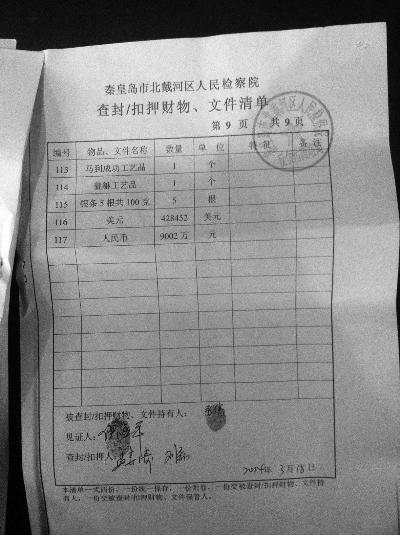 秦皇岛市北戴河区人民检察院
查封/扣押财物、文件清单
第 9 页 共 9 页
编号 物品、文件名称 数量 单 位 特 征 备 注
113 马到成功工艺品 1 个
114 工艺品 1 个
115 银条5根共100克 5 根
116 美元 428452 美元
117 人民币 9002万 元
被查封/扣押财物、文件持有人：
见证人：
查封/扣押人：
2014年3月18日
本清单一式四份，一份统一保存，一份附卷，一份交被查封/扣押财物、文件持
有人，一份交被查封/扣押财物、文件保管人。